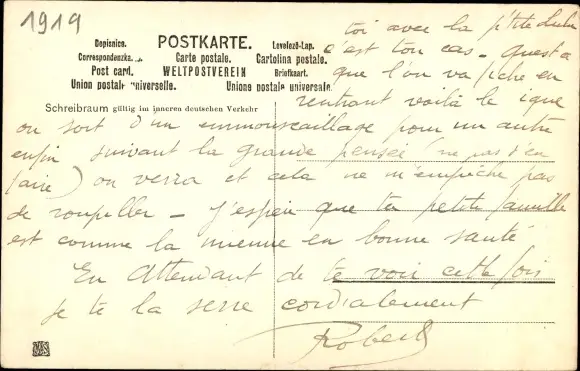 1919
Dopisnice. POSTKARTE. Levelező-Lap.
Correspondenzka. Carte postale. Cartolina postale.
Post card. WELTPOSTVEREIN Briefkaart.
Union postale universelle. Unione postale universale.
Schreibraum gültig im inneren deutschen Verkehr
toi avec la p'tite Lulu
c'est ton cas -
que l'on va fiche en
rentrant voilà le
on sort d'un emmouscaillage pour un autre
enfin suivant la grande pensée (ne pas s'en
faire) on verra et cela ne m'empêche pas
de roupiller - J'espère que ta petite famille
est comme la mienne en bonne santé
En Attendant de te voir cette fois
je te la serre cordialement
Robert